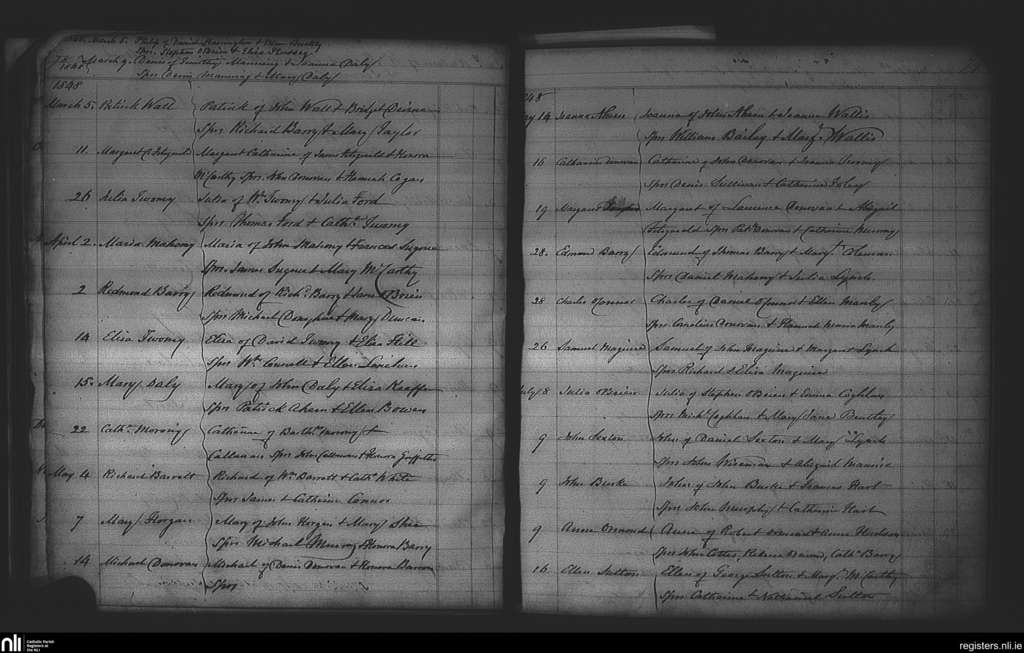 March 5. Philip of David Harrington & Buckley
Sprs. Stephen O'Brien & Eliza
1848 March 9. Denis of Timothy Manning & Joanna Daly
Sprs Denis Manning & Mary Daly
1848
March 5. Patrick Wall Patrick of John Wall & Bridget
Sprs Richard Barry & Mary Taylor
11. Margaret C. Fitzgerald Margaret Catharine of James Fitzgerald & Honora
McCarthy Sprs. John Donovan & Hannah Cogan
26 Julia Twomy Julia of Wm. Twomy & Julia Ford
Sprs Thomas Ford & Cathe. Twomy
April 2. Maria Mahony Maria of John Mahony & Frances Sugrue
Sprs. James Sugrue & Mary McCarthy
2 Redmond Barry Redmond of Richd. Barry & Jane O'Brien
Sprs Michael Donoghue & Mary Duncan
14 Eliza Twomy Eliza of David Twomy & Eliza Hill
Sprs Wm. & Ellen
15. Mary Daly Mary of John Daly & Eliza Keeffe
Sprs Patrick Ahern & Ellen Bowen
22 Cathe. Morony Catharine of Barthw. Morony &
Callanan Sprs John Callanan & Honora Griffiths
May 4 Richard Barrett Richard of Wm. Barrett & Cathe. White
Sprs James & Catherine Connor
7 Mary Horgan Mary of John Horgan & Mary Shea
Sprs. Michael Murray & Honora Barry
14 Michael Donovan Michael of Denis Donovan & Honora Barron
Sprs
1848
14 Joanna Ahern Joanna of John Ahern & Joanna Wallis
Sprs William Bailey & Mary Wallis
16 Catharine Donovan Catharine of John Donovan & Joanna
Sprs Denis Sullivan & Catharine Foley
19 Margaret Donovan Margaret of Laurence Donovan & Abigail
Fitzgerald Sprs Patk. Donovan & Catharine Murray
28. Edmond Barry Edmond of Thomas Barry & Margt. Coleman
Sprs Daniel Mahony & Julia Lynch
28 Charles O'Connor Charles of Daniel O'Connor & Ellen Manly
Sprs Cornelius Donovan & Hannah Maria Manly
26 Samuel Maguire Samuel of John Maguire & Margaret Lynch
Sprs Richard & Eliza Maguire
July 8 Julia O'Brien Julia of Stephen O'Brien & Emma Coghlan
Sprs Michl. Coghlan & Mary Jane Bentley
9 John Sexton John of Daniel Sexton & Mary Lynch
Sprs John Wiseman & Abigail
9 John Burke John of John Burke & Frances Hart
Sprs John Murphy & Catharine Hart
9 Anne Ormond Anne of Robert Ormond & Anne
Sprs John Cotter, Cathe. Barry
16 Ellen Sutton Ellen of George Sutton & Margt. McCarthy
Sprs Catharine & Nathaniel Sutton
nli Catholic Parish
Registers at
the NLI
registers.nli.ie